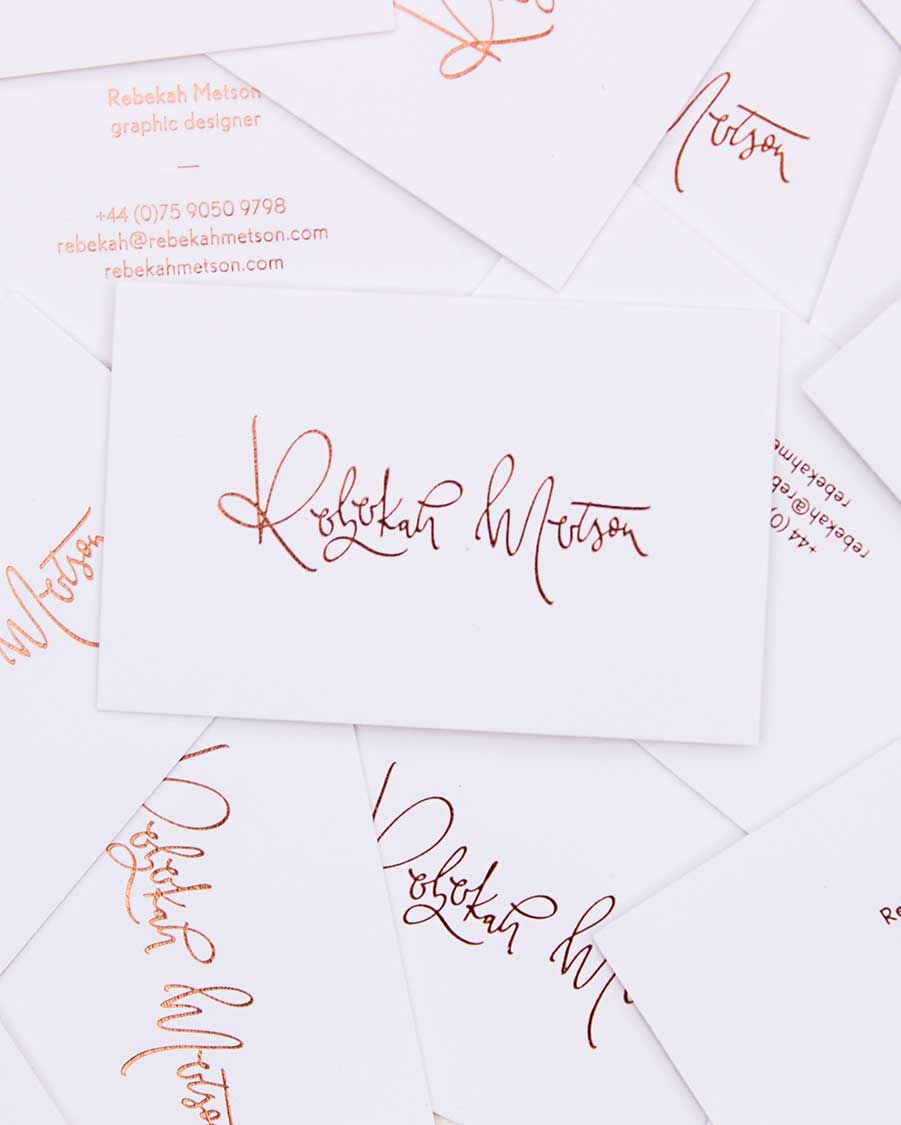 Rebekah Metson
graphic designer
—
+44 (0)75 9050 9798
rebekah@rebekahmetson.com
rebekahmetson.com
Metson
Rebekah Metson
+44 (0)
rebekah@reb
rebekahme
Metson
Rebekah Metson
Rebekah M
Re